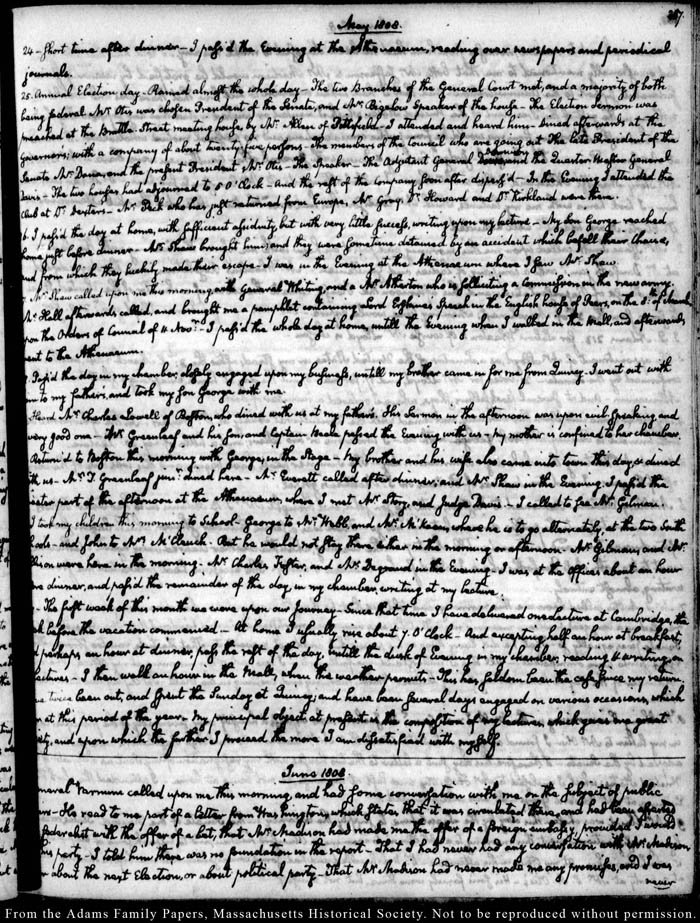 May 1808.
247.
24 - Short time after dinner - I pass'd the Evening at the Athenaeum, reading over newspapers and periodical
journals.
25. Annual Election day - Rained almost the whole day - The two Branches of the General Court met, and a majority of both
being federal Mr. Otis was chosen President of the Senate, and Mr. Bigelow Speaker of the house - The Election Sermon was
preached at the Brattle Street meeting house, by Mr. Allen of Pittsfield - I attended and heard him - Dined afterwards at the
Governors; with a company of about twenty-five persons - The members of the Council who are going out The late President of the
Senate Mr. Dana, and the present President Mr. Otis - The Speaker - The Adjutant General and the Quarter Master General
Davis - The two houses had adjourned to 5 O'Clock - And the rest of the Company soon after dispers'd - In the Evening I attended the
Club at Dr. Dexters - Mr. Peck who has just returned from Europe, Mr. Gray, Dr. Howard and Dr. Kirkland were there.
6. I pass'd the day at home, with sufficient assiduity, but with very little success, writing upon my lecture - My son George reached
home just before dinner - Mr. Shaw brought him; and they were sometime detained by an accident which befell their Chaise,
and from which they luckily made their escape - I was in the Evening at the Athenaeum where I saw Mr. Shaw.
7. Mr. Shaw called upon me this morning, with General Whiting, and a Mr. Atherton who is solliciting a Commission in the new army.
Mr. Hall afterwards called, and brought me a pamphlet containing Lord Erskine's Speech in the English house of Peers, on the 8th. of March
upon the Orders of Council of 11 Novr. - I pass'd the whole day at home, untill the Evening when I walked in the Mall, and afterwards
went to the Athenaeum.
Pass'd the day in my chamber, closely engaged upon my business, untill my brother came in for me from Quincy. I went out with
him to my fathers, and took my Son George with me.
Heard Mr. Charles Lowell of Boston, who dined with us at my father's. His Sermon in the afternoon was upon evil speaking and
very good one - Mr. Greenleaf and his son, and Captain Beale passed the Evening with us - My mother is confined to her chamber.
Return'd to Boston this morning with George, in the Stage - My brother and his wife also came into town this day, & dined
with us - Mr. T. Greenleaf junr. dined here - Mr. Everett called after dinner, and Mr. Shaw in the Evening. I pass'd the
greater part of the afternoon at the Athenaeum, where I met Mr. Story, and Judge Davis - I called to see Mr. Gilman.
I took my children this morning to School - George to Mr. Webb, and Mr. M'Kean, where he is to go alternately, at the two South
Schools - and John to Mrs. M'Cleuch. But he would not stay there either in the morning or afternoon - Mr. Gilman, and Mr.
were here in the morning - Mr. Charles Foster, and Mr. Degrand in the Evening - I was at the Office about an hour
before dinner, and pass'd the remainder of the day in my chamber, writing at my lecture.
- The first week of this month we were upon our Journey - Since that time I have delivered one lecture at Cambridge, the
week before the vacation commenced - At home I usually rise about 7. O'Clock - And excepting half an hour at breakfast,
and perhaps an hour at dinner, pass the rest of the day, untill the dusk of Evening in my chamber, reading & writing on
lectures - I then walk an hour in the Mall, when the weather permits - This has seldom been the case since my return.
twice been out, and spent the Sunday at Quincy; and have been several days engaged on various occasions, which
at this period of the year. My principal object at present is the composition of my lectures, which gives me great
anxiety, and upon which the further I proceed the more I am dissatisfied with myself.
June 1808.
General Varnum called upon me this morning, and had some conversation with me on the subject of public
- He read to me part of a letter from Washington, which states that it was circulated there, and had been asserted
federalist with the offer of a bet, that Mr. Madison had made me the offer of a foreign embassy, provided I would
his party - I told him there was no foundation in the report - That I had never had any conversation with Mr. Madison
about the next Election, or about political party - That Mr. Madison had never made me any promises, and I was
never
From the Adams Family Papers, Massachusetts Historical Society. Not to be reproduced without permission.